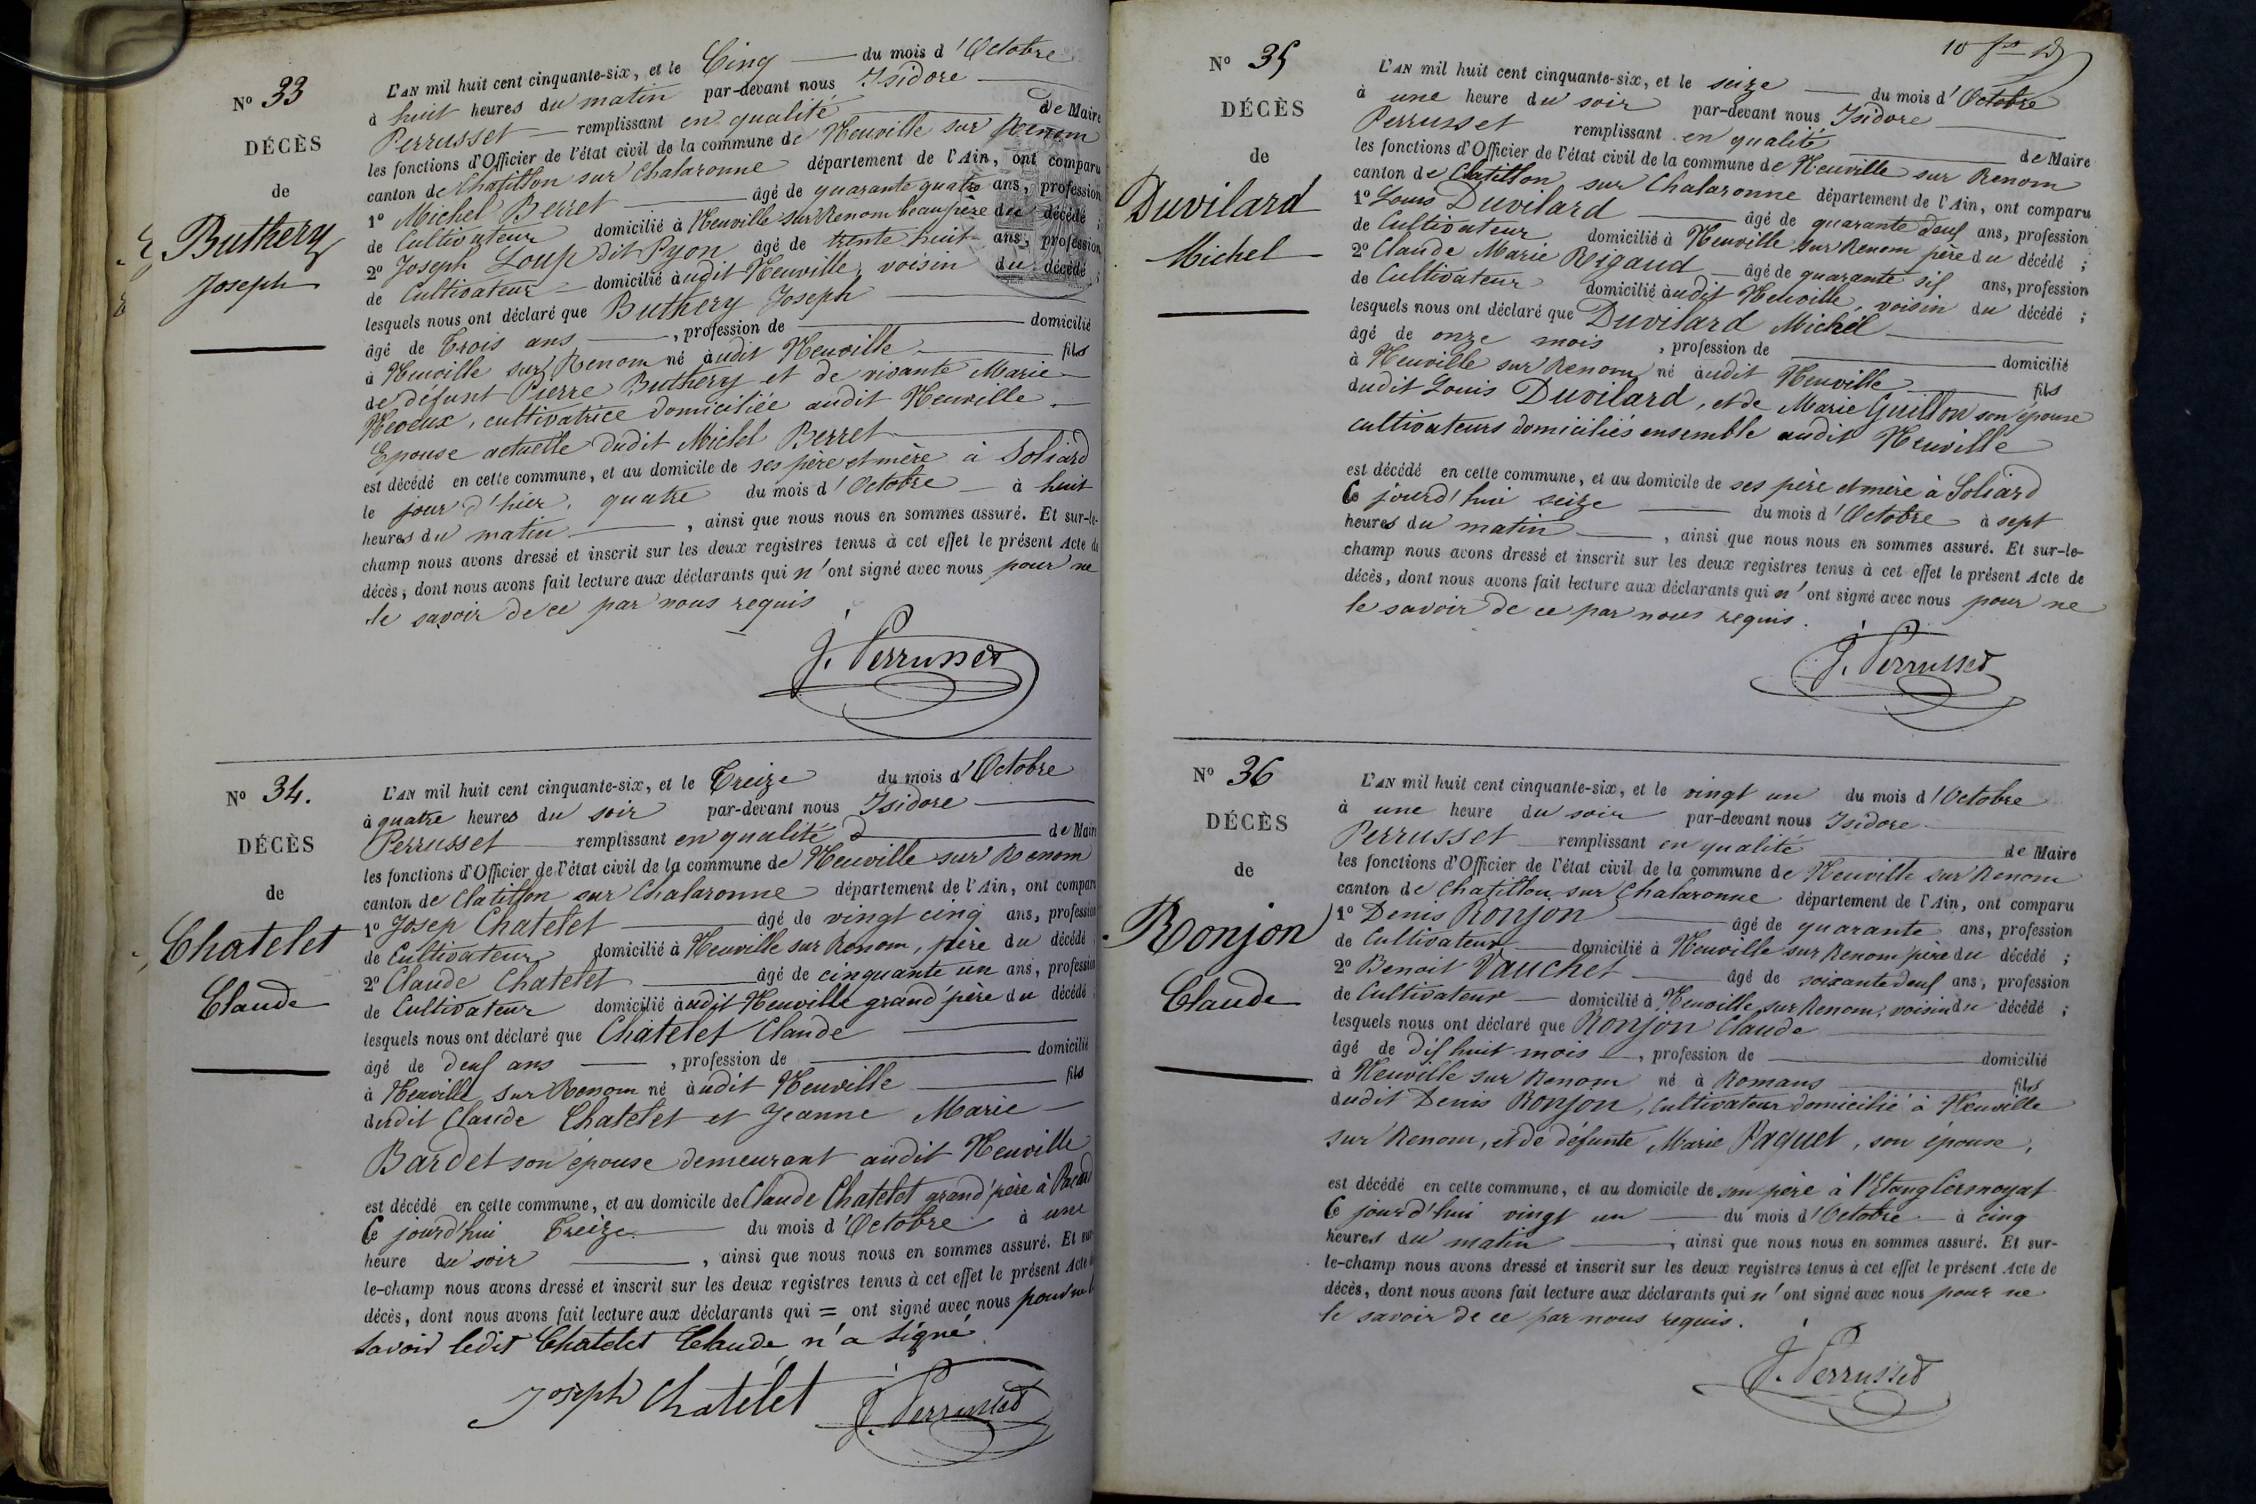 N° 33
DÉCÈS
de
Buthery
Joseph
L'AN mil huit cent cinquante-six, et le Cinq du mois d'Octobre
à huit heures du matin par-devant nous Isidore
Perrusset remplissant en qualité de Maire
les fonctions d'Officier de l'état civil de la commune de Neuville sur Renom
canton de Chatillon sur Chalaronne département de l'Ain, ont comparu
1° Michel Berret âgé de quarante quatre ans, profession
de Cultivateur domicilié à Neuville sur Renom beaupère du décédé ;
2° Joseph Loup dit Pyon âgé de trente huit ans, profession
de Cultivateur domicilié audit Neuville, voisin du décédé ;
lesquels nous ont déclaré que Buthery Joseph
âgé de Trois ans , profession de domicilié
à Neuville sur Renom né audit Neuville fils
de défunt Pierre Buthery et de vivante Marie
Neveux, cultivatrice domiciliée audit Neuville
Epouse actuelle dudit Michel Berret
est décédé en cette commune, et au domicile de ses père et mère à Soliard
le jour d'hier, quatre du mois d'Octobre à huit
heures du matin , ainsi que nous nous en sommes assuré. Et sur-le-
champ nous avons dressé et inscrit sur les deux registres tenus à cet effet le présent Acte de
décès, dont nous avons fait lecture aux déclarants qui n'ont signé avec nous pour ne
le savoir de ce par nous requis
J. Perrusset
N° 34.
DÉCÈS
de
Chatelet
Claude
L'AN mil huit cent cinquante-six, et le Treize du mois d'Octobre
à quatre heures du soir par-devant nous Isidore
Perrusset remplissant en qualité de Maire
les fonctions d'Officier de l'état civil de la commune de Neuville sur Renom
canton de Clatillon sur Chalaronne département de l'Ain, ont comparu
1° Josep Chatelet âgé de vingt cinq ans, profession
de Cultivateur domicilié à Neuville sur Renom, père du décédé
2° Claude Chatelet âgé de cinquante un ans, profession
de Cultivateur domicilié audit Neuville grand'père du décédé
lesquels nous ont déclaré que Chatelet Claude
âgé de deux ans , profession de domicilié
à Neuville sur Renom né audit Neuville fils
dudit Claude Chatelet et Jeanne Marie
Bardet son épouse demeurant audit Neuville
est décédé en cette commune, et au domicile de Claude Chatelet grand'père à
Ce jourd'hui Treize du mois d'Octobre à une
heure du soir , ainsi que nous nous en sommes assuré. Et sur
le-champ nous avons dressé et inscrit sur les deux registres tenus à cet effet le présent Acte
décès, dont nous avons fait lecture aux déclarants qui = ont signé avec nous pour ne le
savoir ledit Chatelet Claude n'a signé
Joseph Chatélet J. Perrusset
10 fre
N° 35
DÉCÈS
de
Duvilard
Michel
L'AN mil huit cent cinquante-six, et le seize du mois d'Octobre
à une heure du soir par-devant nous Isidore
Perrusset remplissant en qualité de Maire
les fonctions d'Officier de l'état civil de la commune de Neuville sur Renom
canton de Clatillon sur Chalaronne département de l'Ain, ont comparu
1° Louis Duvilard âgé de quarante deux ans, profession
de Cultivateur domicilié à Neuville sur Renom père du décédé ;
2° Claude Marie Rigaud âgé de quarante six ans, profession
de Cultivateur domicilié audit Neuville, voisin du décédé ;
lesquels nous ont déclaré que Duvilard Michel
âgé de onze mois , profession de domicilié
à Neuville sur Renom né audit Neuville fils
dudit Louis Duvilard, et de Marie Guillon son épouse
cultivateurs domiciliés ensemble audit Neuville
est décédé en cette commune, et au domicile de ses père et mère à Soliard
Ce jourd'hui seize du mois d'Octobre à sept
heures du matin , ainsi que nous nous en sommes assuré. Et sur-le-
champ nous avons dressé et inscrit sur les deux registres tenus à cet effet le présent Acte de
décès, dont nous avons fait lecture aux déclarants qui n'ont signé avec nous pour ne
le savoir de ce par nous requis.
J. Perrusset
N° 36
DÉCÈS
de
Ronjon
Claude
L'AN mil huit cent cinquante-six, et le vingt un du mois d'Octobre
à une heure du soir par-devant nous Isidore
Perrusset remplissant en qualité de Maire
les fonctions d'Officier de l'état civil de la commune de Neuville sur Renom
canton de Chatillon sur Chalaronne département de l'Ain, ont comparu
1° Denis Ronjon âgé de quarante ans, profession
de Cultivateur domicilié à Neuville sur Renom père du décédé ;
2° Benoit Vaucher âgé de soixante deux ans, profession
de Cultivateur domicilié à Neuville sur Renom, voisin du décédé ;
lesquels nous ont déclaré que Ronjon Claude
âgé de dix huit mois , profession de domicilié
à Neuville sur Renom né à Romans fils
dudit Denis Ronjon, cultivateur domicilié à Neuville
sur Renom, et de défunte Marie Paquet, son épouse,
est décédé en cette commune, et au domicile de son père à
Ce jourd'hui vingt un du mois d'Octobre à cinq
heures du matin , ainsi que nous nous en sommes assuré. Et sur-
le-champ nous avons dressé et inscrit sur les deux registres tenus à cet effet le présent Acte de
décès, dont nous avons fait lecture aux déclarants qui n'ont signé avec nous pour ne
le savoir de ce par nous requis.
J. Perrusset